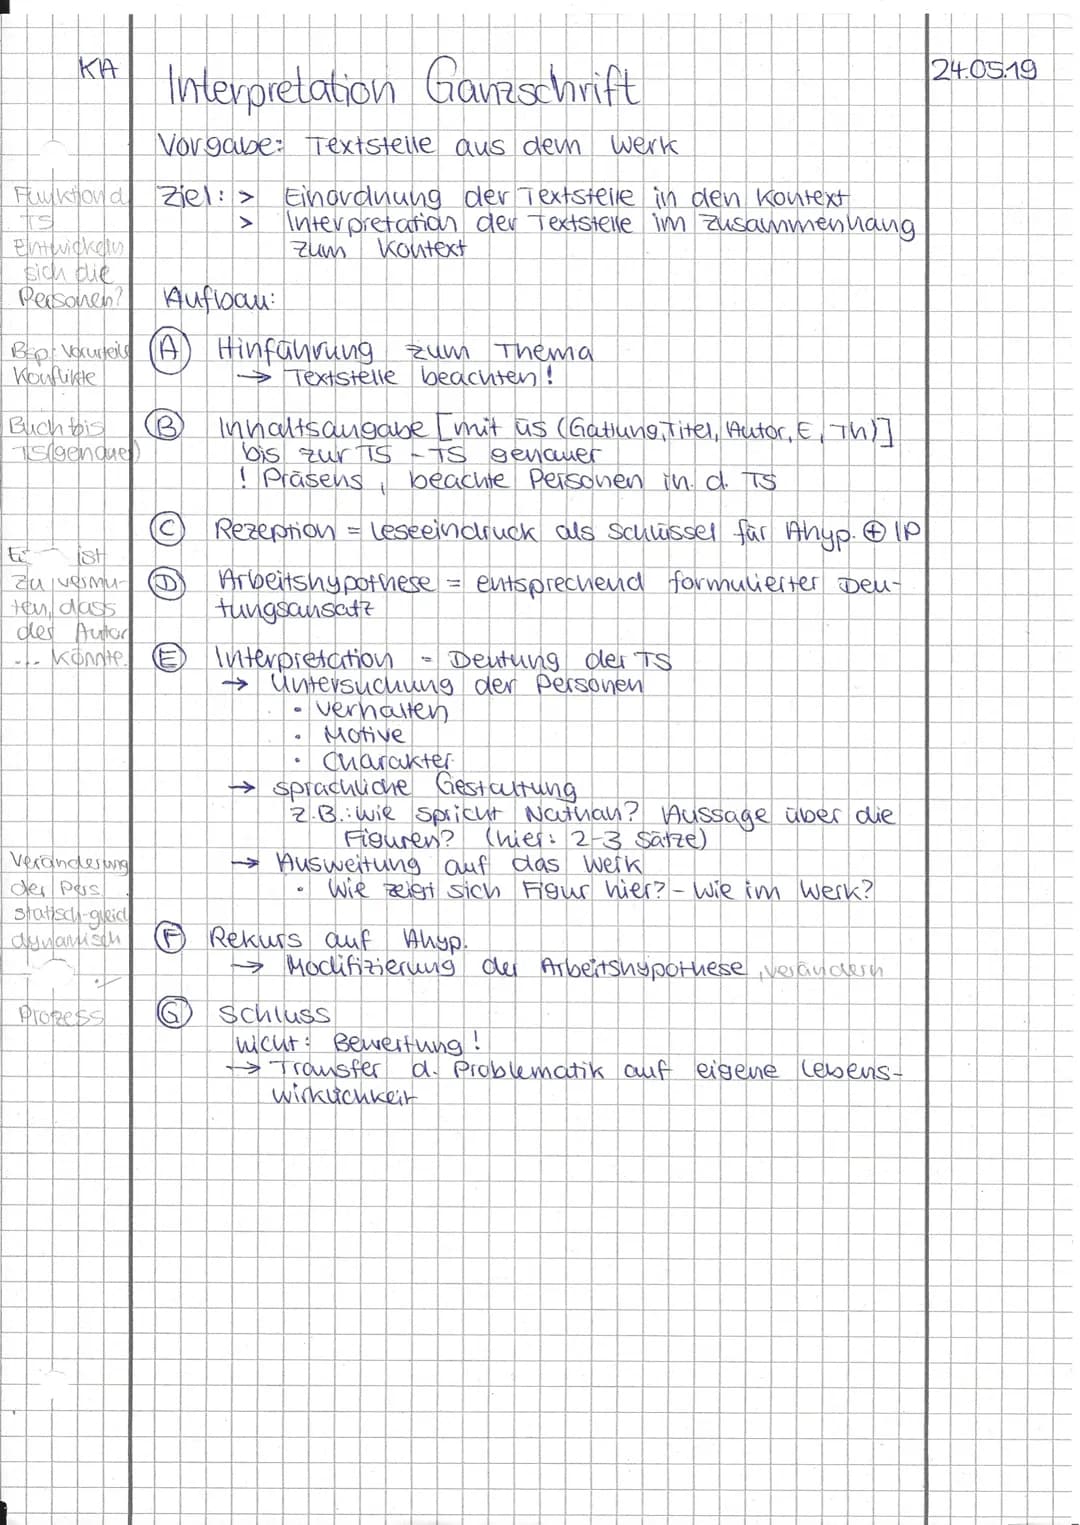 KA
Interpretation Ganzschrift
24.05.19
Vorgabe: Textstelle aus dem Werk
Funktion d.
TS
Entwickeln
sich die
Personen?
Ziel: > Einordnung der Textstelle in den Kontext
> Interpretation der Textstelle im Zusammenhang
zum Kontext
Aufbau:
Bsp: Vorurteile
Konflikte
A Hinführung zum Thema
→ Textstelle beachten!
Buch bis
TS (genauer)
B Inhaltsangabe [mit ÜS (Gattung, Titel, Autor, E, Th)]
bis zur TS - TS genauer
! Präsens, beachte Personen in d. TS
C Rezeption = Leseeindruck als Schlüssel für Ahyp. ⊕ IP
Es ist
zu vermu-
ten, dass
der Autor
... könnte.
D Arbeitshypothese = entsprechend formulierter Deu-
tungsansatz
E Interpretation = Deutung der TS
→ Untersuchung der Personen
• Verhalten
• Motive
• Charakter
→ sprachliche Gestaltung
z.B.: Wie spricht Nathan? Aussage über die
Figuren? (hier: 2-3 Sätze)
→ Ausweitung auf das Werk
• Wie zeigt sich Figur hier? - Wie im Werk?
Veränderung
der Pers.
statisch-gleich
dynamisch
Prozess
F Rekurs auf Ahyp.
→ Modifizierung der Arbeitshypothese, verändern
G Schluss
nicht: Bewertung!
→ Transfer d. Problematik auf eigene Lebens-
wirklichkeit